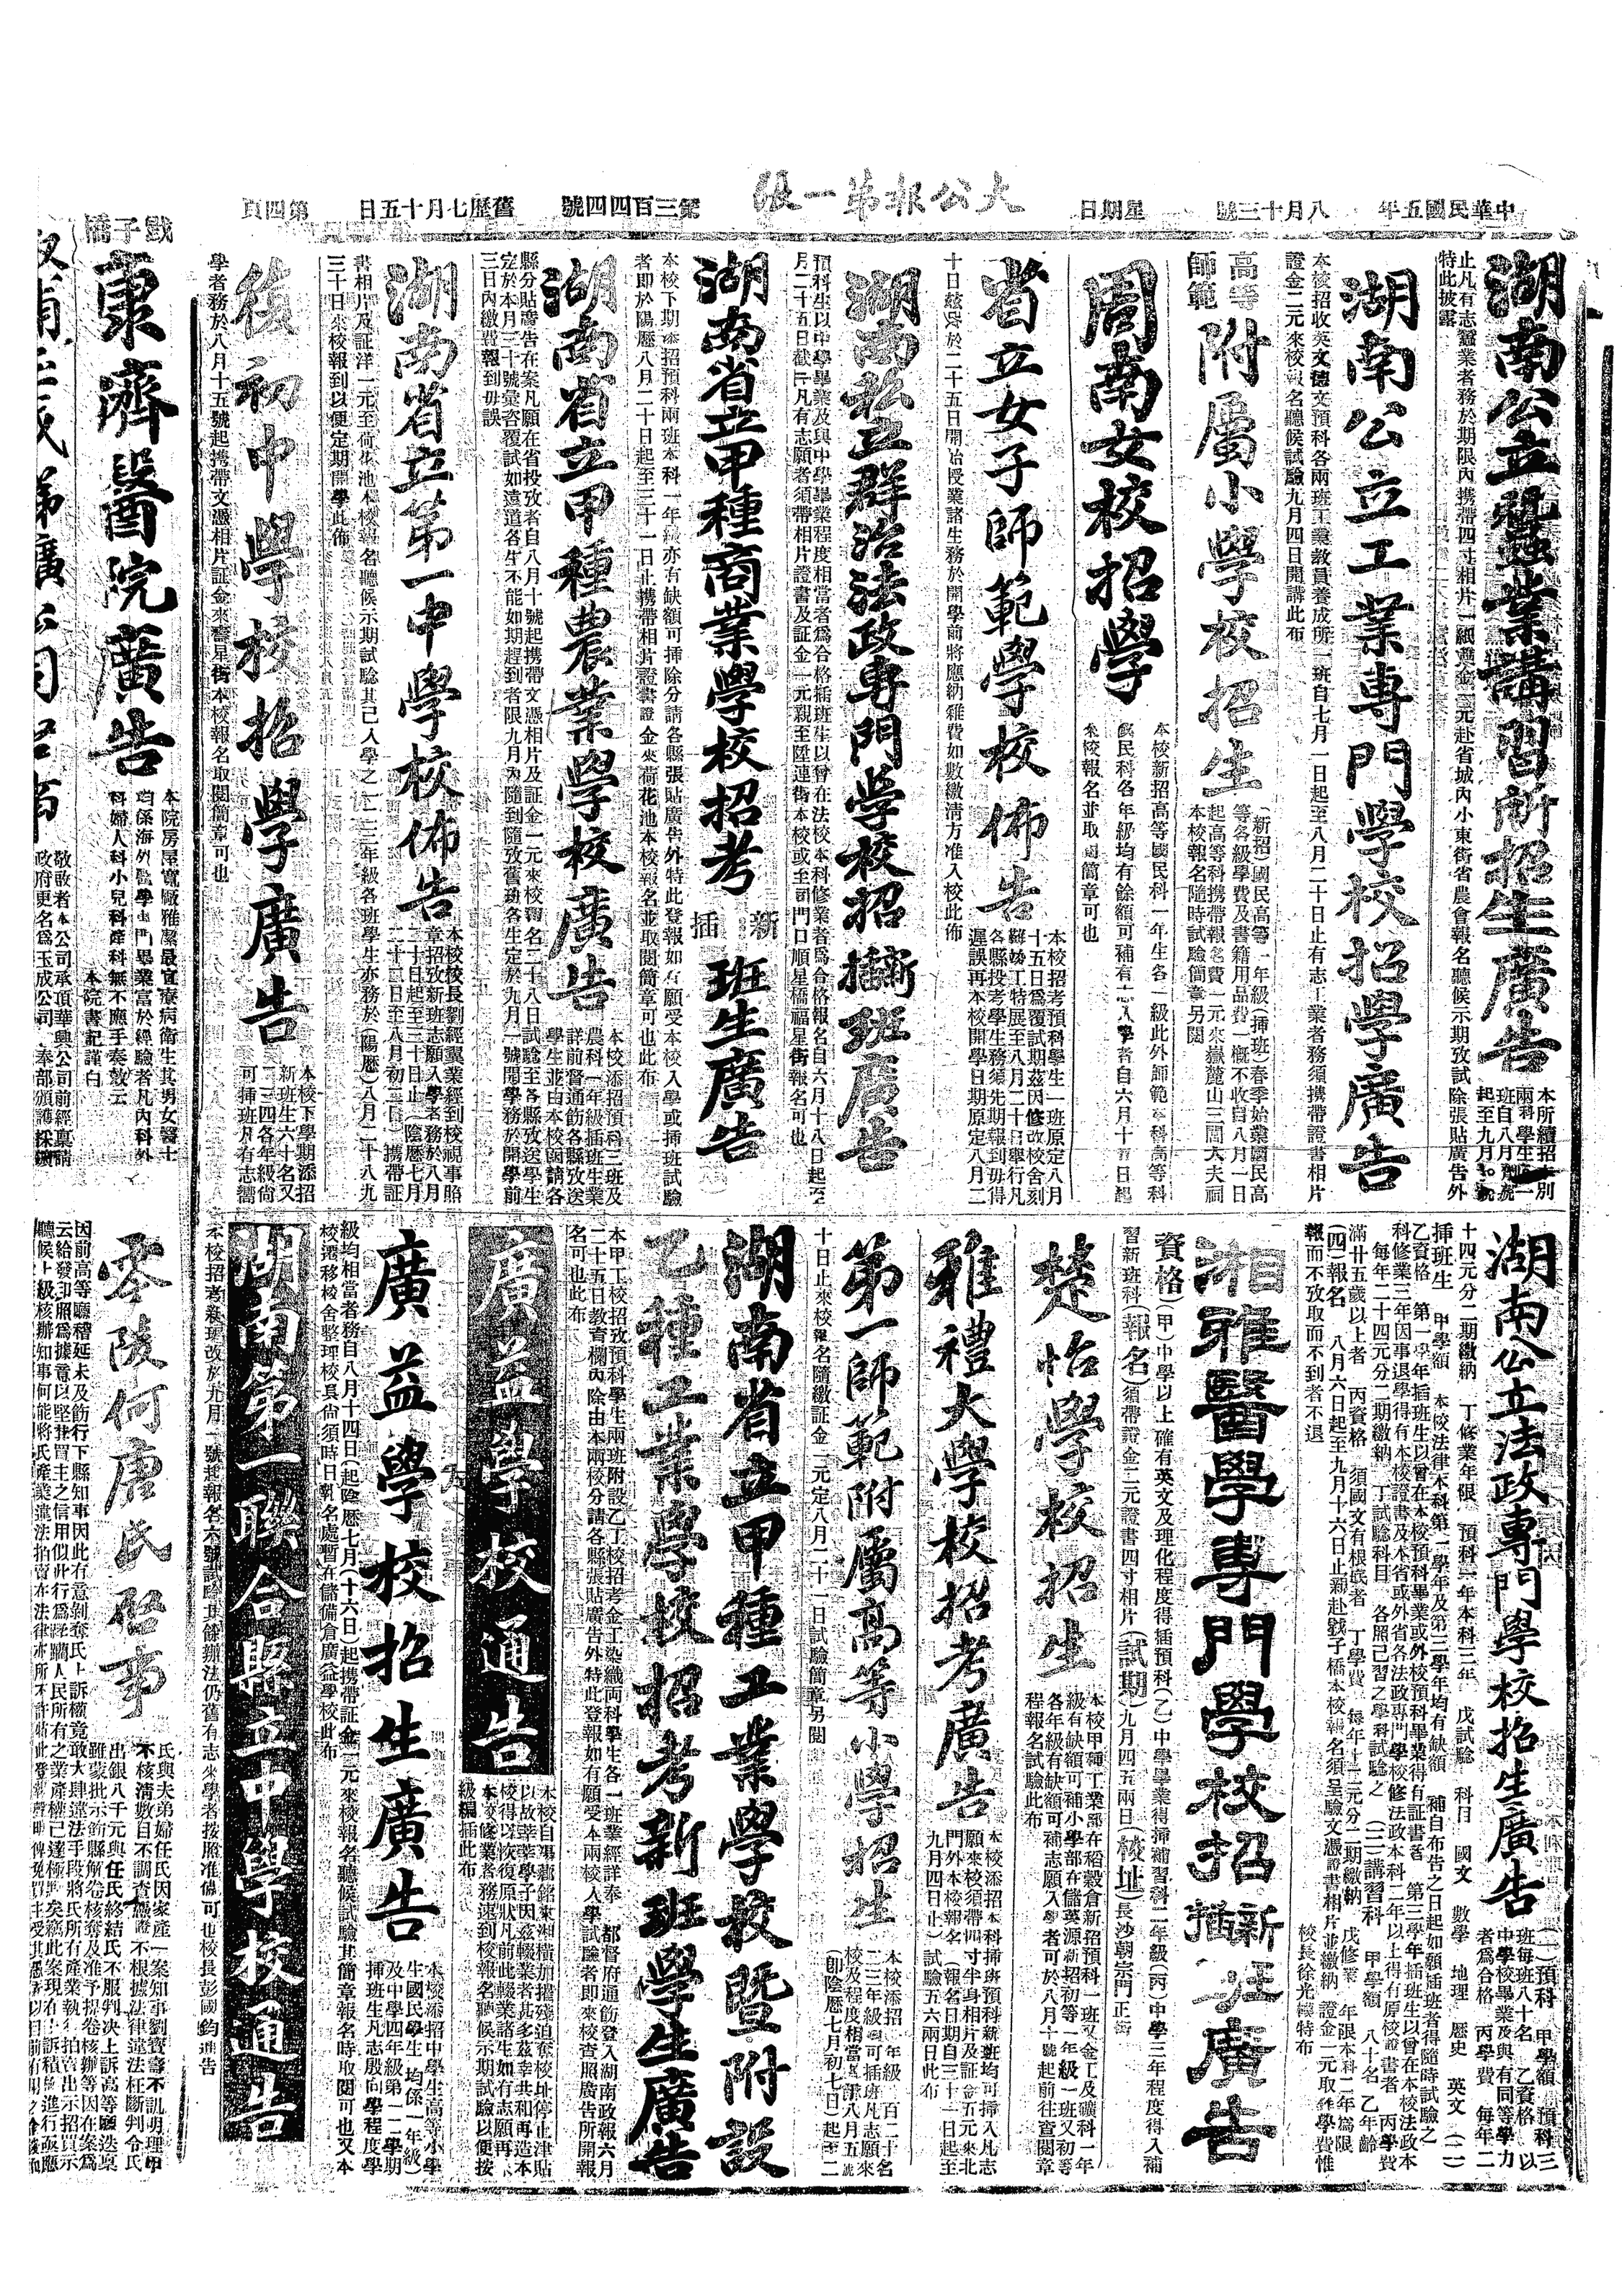 中華民國五年
八月十三號
星期日
大公報第一張
第三百四四號
舊歷七月十五日
第四頁
湖南公立蠶業講習所招生廣告
本所續招本別
兩科學生各一
起至九月
止凡有志蠶業者務於期限內携帶四寸相片一紙證金二元赴省城內小東街省農會報名聽候示期攷試除張貼廣告外
特此披露
湖南公立工業專門學校招學廣告
本校招收英文德文預科各兩班工業教員養成所一班自七月一日起至八月二十日止有志工業者務須携帶證書相片
證金二元來校報名聽候試驗九月四日開講此布
高等師範附屬小學校招生
(新招)國民高等一年級(插班)春季始業國民高
等各級學費及書籍用品費一概不收自八月一日
起高等科携帶報名費一元來嶽麓山三閭大夫祠
本校報名隨時試驗簡章另閱
周南女校招學
本校新招高等國民科一年生各一級此外師範本科高等科
國民科各年級均有餘額可補有志入學者自六月十五日起
來校報名並取閱簡章可也
省立女子師範學校佈告
本校招考預科學生一班原定八月
十五日爲覆試期茲因修改校舍刻
難竣工特展至八月二十日舉行凡
各縣投考學生務須先期報到毋得
遲誤再本校開學日期原定八月二
十日玆改於二十五日開始授業諸生務於開學前將應納雜費如數繳清方准入校此佈
湖南私立群治法政專門學校招新插班廣告
預科生以中學畢業及與中學畢業程度相當者爲合格插班生以曾在法校本科修業者爲合格報名自六月十八日起至
月二十五日截止凡有志願者須帶相片證書及証金一元親至陞連街本校或至司門口順星橋福星街報名可也
湖南省立甲種商業學校招考新插班生廣告
本校下期添招預科兩班本科一年級亦有缺額可挿除分請各縣張貼廣告外特此登報如有願受本校入學或挿班試驗
者即於陽歷八月二十日起至三十一日止携帶相片證書證金來荷花池本校報名並取閱簡章可也此布
湖南省立甲種農業學校廣告
本校添招預科三班及
農科一年級插班生業
詳前督通飭各縣攷送
學生並由本校函請各
縣分貼廣告在案凡願在省投攷者自八月十號起携帶文憑相片及証金一元來校報名二十八日試驗至各縣攷送學生
定於本月三十號彙咨覆試如遠道各生不能如期趕到者限九月內隨到隨攷舊新各生定於九月一號開學務於開學前
三日內繳費報到毋誤
湖南省立第一中學校佈告
本校校長劉經翼業經到校視事賠
章招攷新班志願入學者務於八月
二十日起至三十日止(陰歷七月
二十二日至八月初二日)携帶証
書相片及証洋一元至荷花池本校報名聽候示期試驗其已入學之一二三年級各班學生亦務於(陽歷)八月二十八九
三十日來校報到以便定期開學此佈
復初中學校招學廣告
本校下學期添招
新班生六十名又
二三四各年級尙
可挿班凡有志嚮
學者務於八月十五號起携帶文憑相片証金來警星街本校報名取閱簡章可也
戥子橋
康濟醫院廣告
本院房屋寬廠雅潔最宜療病衛生其男女醫士
均係海外醫學專門畢業富於經驗者凡內科外
科婦人科小兒科產科無不應手奏效云
本院書記謹白
敬啟者本公司承頂華興公司前經稟請
政府更名爲玉成公司 奉部頒護採礦
湖南公立法政專門學校招生廣告
(一)預科 甲學額 預科三
班每班八十名 乙資格 以
中學校畢業及與有同等學力
者爲合格 丙學費 每年二
十四元分二期繳納 丁修業年限 預科一年本科三年 戊試驗 科目 國文 數學 地理 歷史 英文 (二)
插班生 甲學額 本校法律本科第一學年及第三學年均有缺額 補自布告之日起如願插班者得隨時試驗之
乙資格 第一學年插班生以曾在本校預科畢業或外校預科畢業得有証書者 第三學年插班生以曾在本校法政本
科修業三年因事退學得有本校證書及本省或外省各法政專門學校修法政本科二年以上得有原校證書者 丙學費
每年二十四元分二期繳納 丁試驗科目 各照己習之學科試驗之 (三)講習科 甲學額 八十名 乙年齡
滿廿五歲以上者 丙資格 須國文有根底者 丁學費 每年廿二元分二期繳納 戊修業 年限本科二年爲限
(四)報名 八月六日起至九月十六日止親赴戥子橋本校報名須呈驗文憑證書相片並繳納 證金一元取作學費惟
報而不攷取而不到者不退
校長徐光樺特布
湘雅醫學專門學校招新插班廣告
資格(甲)中學以上確有英文及理化程度得插預科(乙)中學學業得揷補習科二年級(丙)中學三年程度得入補
習新班科(報名)須帶證金二元證書四寸相片(試期)九月四五兩日(校址)長沙朝宗門正街
楚怡學校招生
本校甲種工業部在稻穀倉新招預科一班又金工及礦科一年
級有缺額可補小學部在儲英源新招初等一年級一班又初等
各年級有缺額可補志願入學者可於八月十號起前往查閱章
程報名試驗此布
雅禮大學校招考廣告
本校添招本科揷班預科新班均可揷入凡志
願來校須帶四寸半身相片及証金五元來北
門外本校報名(報名日期自三十一日起至
九月四日止)試驗五六兩日此布
第一師範附屬高等小學招生
本校添招一年級一百二十名
二三年級均可插班凡志願來
校及程度相當者訂八月五號
(卽陰歷七月初七日)起至二
十日止來校報名隨繳証金一元定八月二十一日試驗簡章另閱
湖南省立甲種工業學校暨附設
乙種工業學校招考新班學生廣告
本甲工校招攷預科學生兩班附設乙丁校招考金工染織両科學生各一班業經詳奉 都督府通飭登入湖南政報六月
二十五日教育欄內除由本兩校分請各縣張貼廣告外特此登報如有願受本兩校入學試驗者即來校查照廣告所開報
名可也此布
廣益學校通告
本校自湯薌銘來湘橫加摧殘迫奪校址停止津貼
以故莘莘學子因茲輟業者甚多茲幸共和再造本
校得以恢復原狀凡前此輟業諸生如有志願再入
本校修業者務速到校報名聽候示期試驗以便按
級編插此布
廣益學校招生廣告
本校添招中學生高等小學
生國民學生均係一年級)
及中學四年級第一二學期
揷班生凡志殷向學程度學
級均相當者務自八月十四日(起陰歷七月(十六日)起携帶証金二元來校報名聽候試驗其簡章報名時取閱可也又本
校遷移校舍整理校具尙須時日報名處暫在儲備倉廣益學校此布
湖南第一聯合縣立中學校通告
本校招考新班改於九月一號起報名六號試驗其餘辦法仍舊有志來學者按照准備可也校長彭國鈞通告
零陵何唐氏啓事
氏與夫弟婦任氏因家產一案知事劉賓壽不訊明理由
不核清數目不調查憑證不根據法律違法枉斷判令氏
出銀八千元與任氏終結氏不服判決上訴高等廳迭稟
雖蒙批示飭縣解卷核奪及准予提卷核辦等因在案爲
因前高等廳稽延未及飭行下縣知事因此有意剝奪氏上訴權竟敢大肆違法手段將氏所有產業執行拍賣出示招買示
云給發印照爲據意以堅其買主之信用似此行爲蹂躪人民所有之業產權已達極點矣竊此案現在上訴積極進行亟應